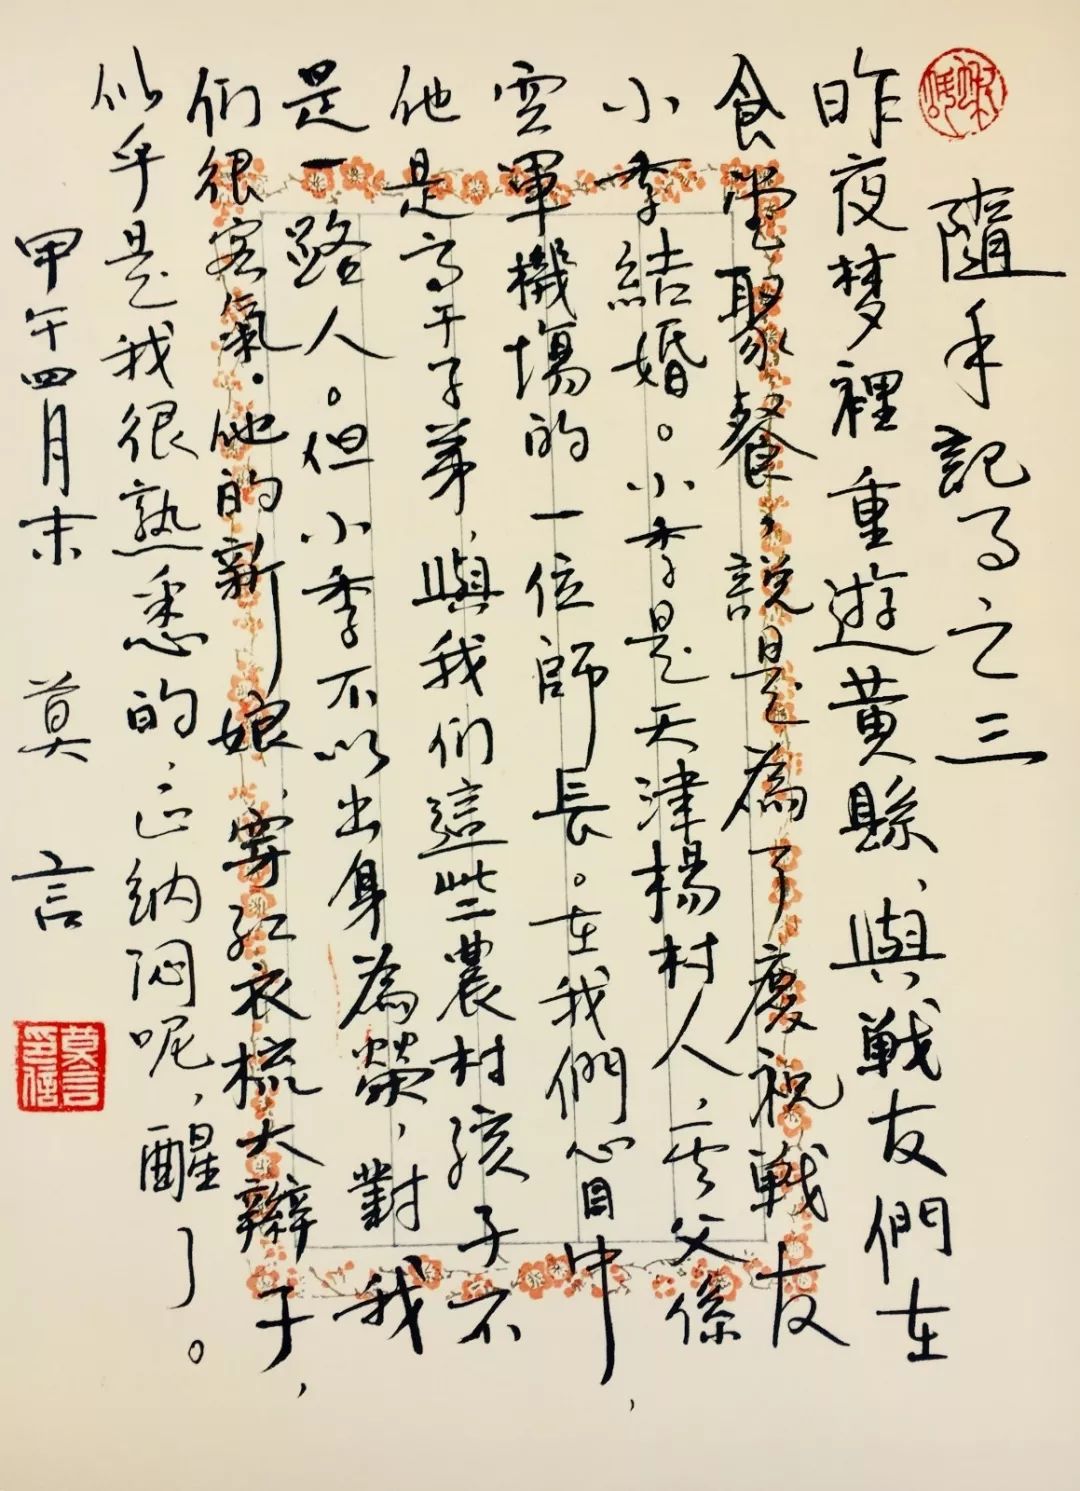 隨手記事之三
昨夜梦裡重遊黄縣、與戦友們在
食堂聚餐，説是為了慶祝戦友
小季結婚。小季是天津楊村人，其父係
空軍機場的一位師長。在我們心目中，
他是高干子弟，與我们這些農村孩子不
是一路人。但小季不以出身為榮，對我
们很客氣。他的新娘，穿红衣梳大辮子，
似乎是我很熟悉的，正纳闷呢，醒了。
甲午四月末 莫言
莫言印信